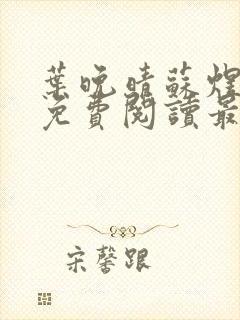 葉晚晴蘇煜
免費閱讀最
宋馨跟